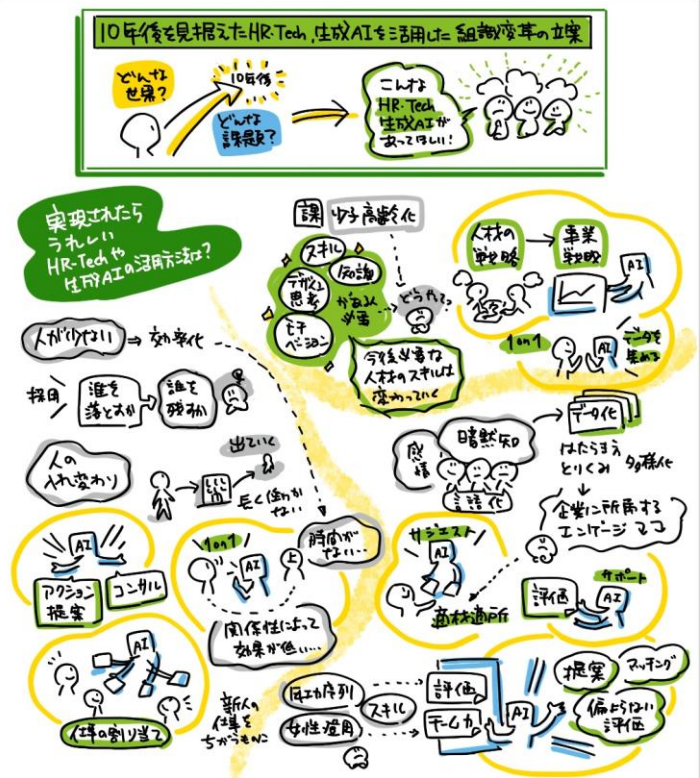 10年後を見据えたHR-Tech,生成AIを活用した組織変革の立案
どんな
世界?
10年後
どんな
課題?
こんな
HR-Tech
生成AIが
あってほしい!
実現されたら
うれしい
HR-Techや
生成AIの活用方法は?
課 少子高齢化
スキル
知識
デザイン
思考
がある人
必要
モチ
ベーション
どうやって?
今後必要な
人材のスキルは
変わっていく
人材の
戦略
事業
戦略
AI
1on1
AI
データを
集める
人が少ない ⇒ 効率化
採用
誰を
落とすか
誰を
残すか
人の
入れ変わり
出ていく
長く働か
ない
感情
暗黙知
言語化
データ化
はたらき方
とりくみ 多様化
企業に所属する
エンゲージ
AI
アクション
提案
コンサル
1on1
AI
上
時間が
ない…
関係性によって
効果が低い…
サジェスト
AI
適材適所
評価
サポート
AI
AI
仕事の割り当て
新人の
仕事を
ちがうものに
年功序列
スキル
女性登用
評価
チーム力
AI
提案
マッチング
偏よらない
評価